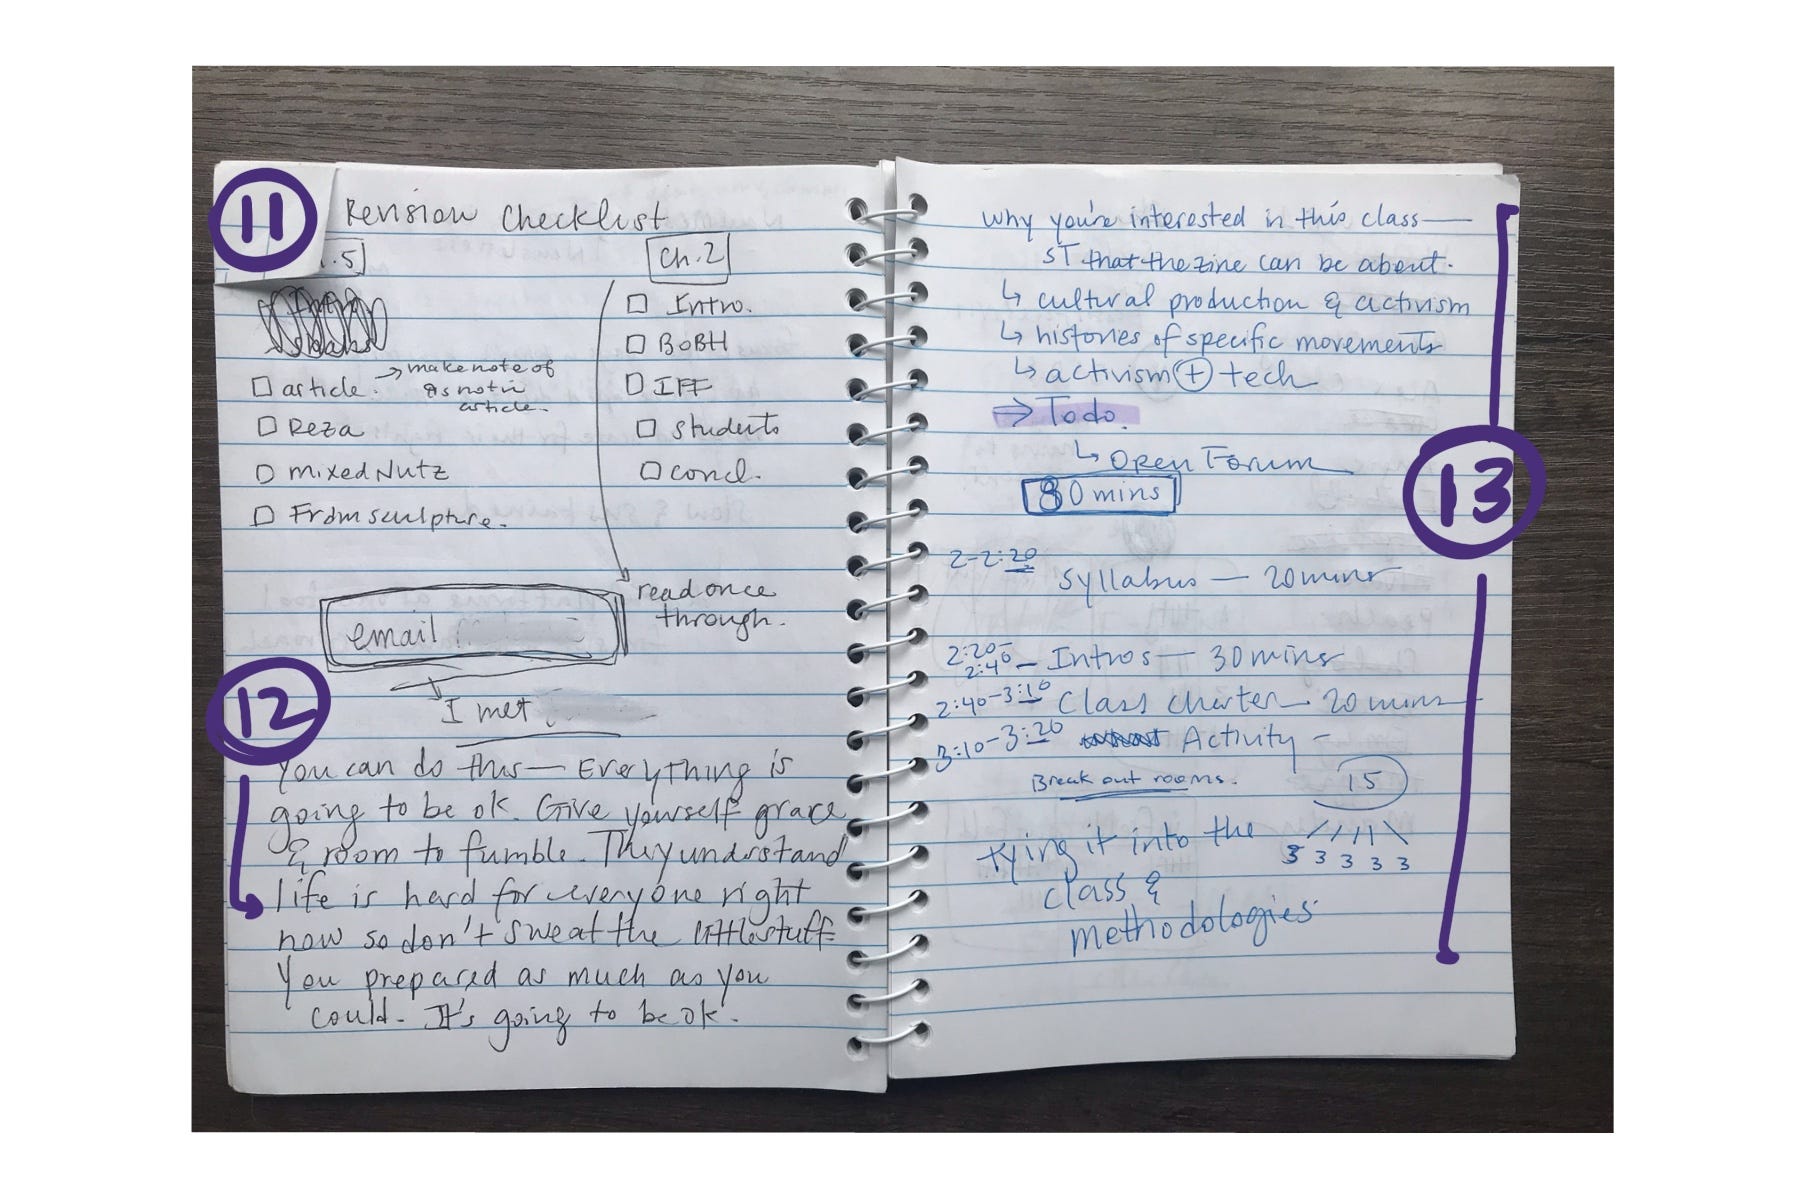 11
Revision Checklist
.5]
Ch. 2
□ article. → make note of
as not in
article.
□ Reza
□ mixed Nutz
□ From sculpture.
□ Intro.
□ BOBH
□ IFF
□ students
□ concl.
read once
through.
email
I met
12
You can do this — Everything is
going to be ok. Give yourself grace
& room to fumble. They understand
life is hard for everyone right
now so don't sweat the little stuff
You prepared as much as you
could. It's going to be ok.
why you're interested in this class —
ST that the zine can be about.
↳ cultural production & activism
↳ histories of specific movements
↳ activism + tech
⇒ Todo.
↳ Open Forum
80 mins
13
2-2:20 Syllabus — 20 mins
2:20-
2:40 — Intros — 30 mins
2:40-3:10 Class charter — 20 mins
3:10-3:20 Activity -
Break out rooms. 15
tying it into the
3 3 3 3 3
class &
methodologies